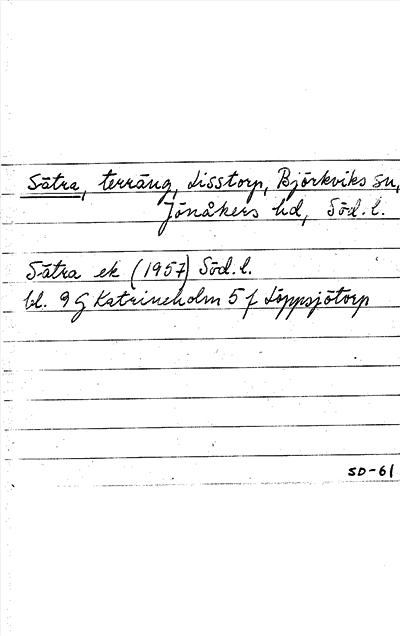 Sätra, terräng, Lisstorp, Björkviks sn,
Jönåkers hd, Söd. l.
Sätra ek (1957) Söd. l.
bl. 9 G Katrineholm 5 f Löppsjötorp
SD-61